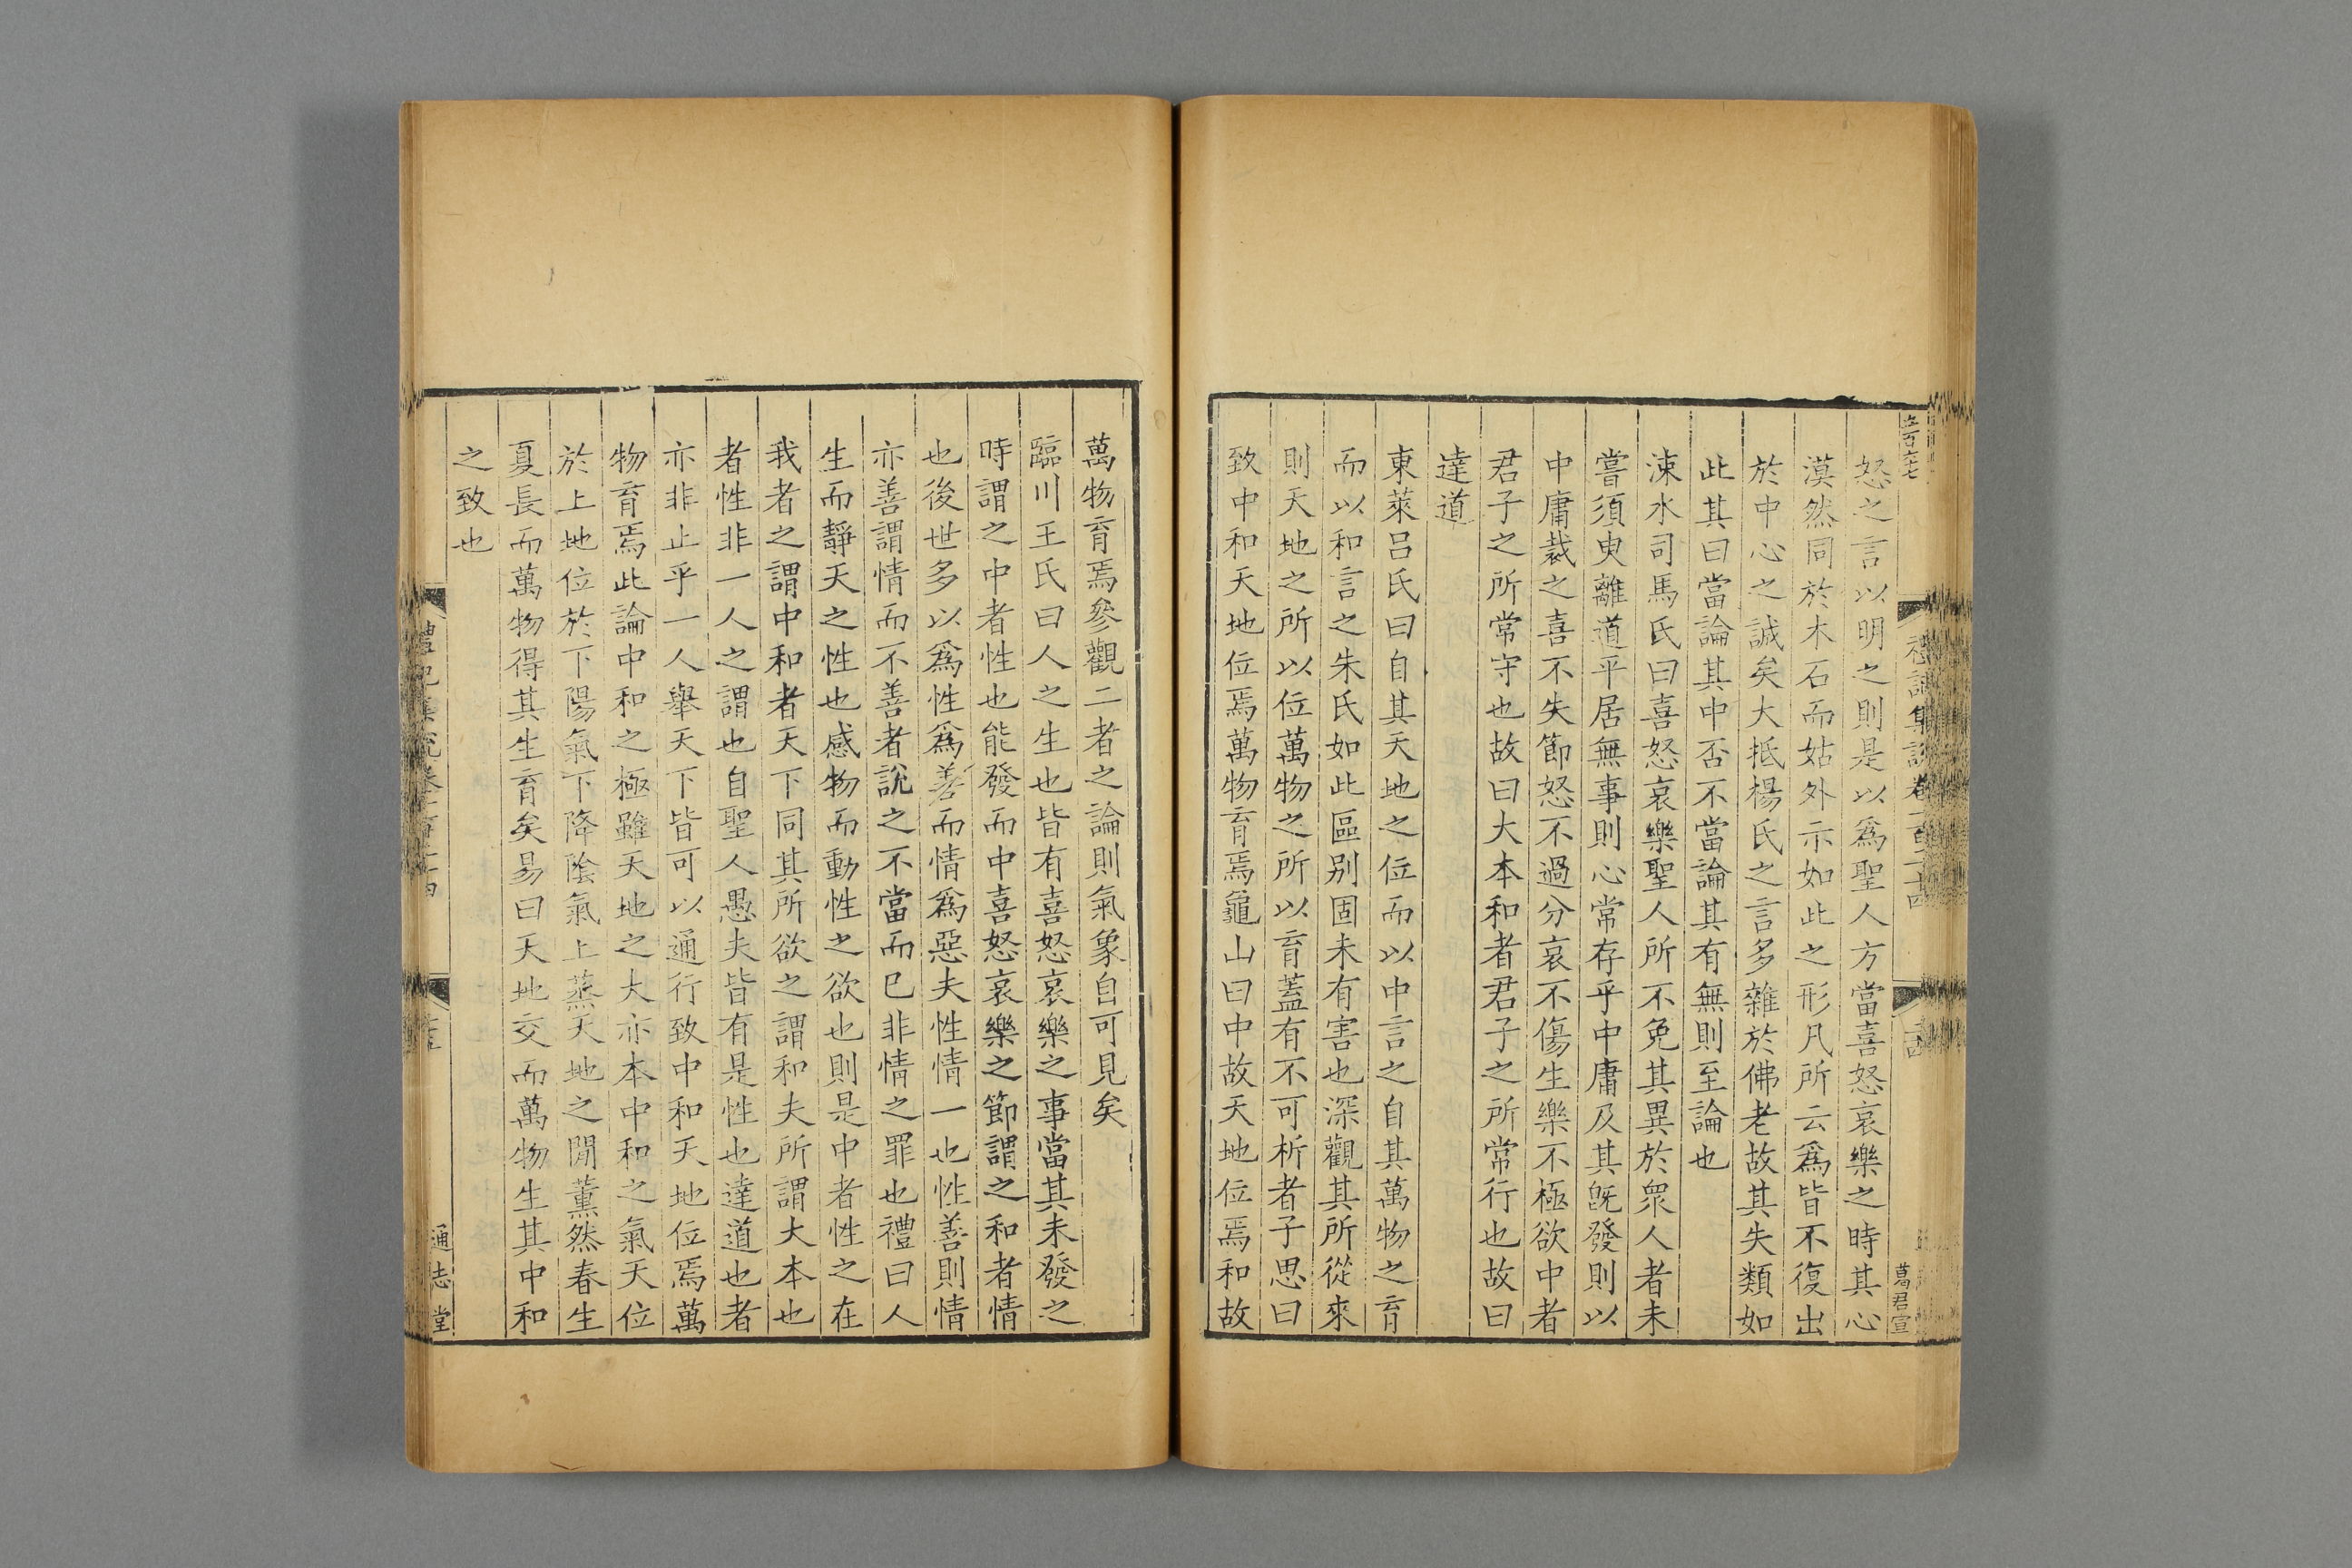 怒之言以明之則是以爲聖人方當喜怒哀樂之時其心
漠然同於木石而姑外示如此之形凡所云爲皆不復出
於中心之誠矣大抵楊氏之言多雜於佛老故其失類如
此其曰當論其中否不當論其有無則至論也
涑水司馬氏曰喜怒哀樂聖人所不免其異於衆人者未
嘗須臾離道平居無事則心常存乎中庸及其旣發則以
中庸裁之喜不失節怒不過分哀不傷生樂不極欲中者
君子之所常守也故曰大本和者君子之所常行也故曰
達道
東萊呂氏曰自其天地之位而以中言之自其萬物之育
而以和言之朱氏如此區别固未有害也深觀其所從來
則天地之所以位萬物之所以育蓋有不可析者子思曰
致中和天地位焉萬物育焉龜山曰中故天地位焉和故
葛君宣
萬物育焉參觀二者之論則氣象自可見矣
臨川王氏曰人之生也皆有喜怒哀樂之事當其未發之
時謂之中者性也能發而中喜怒哀樂之節謂之和者情
也後世多以爲性爲善而情爲惡夫性情一也性善則情
亦善謂情而不善者說之不當而已非情之罪也禮曰人
生而靜天之性也感物而動性之欲也則是中者性之在
我者之謂中和者天下同其所欲之謂和夫所謂大本也
者性非一人之謂也自聖人愚夫皆有是性也達道也者
亦非止乎一人舉天下皆可以通行致中和天地位焉萬
物育焉此論中和之極雖天地之大亦本中和之氣天位
於上地位於下陽氣下降陰氣上蒸天地之間薰然春生
夏長而萬物得其生育矣易曰天地交而萬物生其中和
之致也
禮記集說卷一百二十四
通志堂